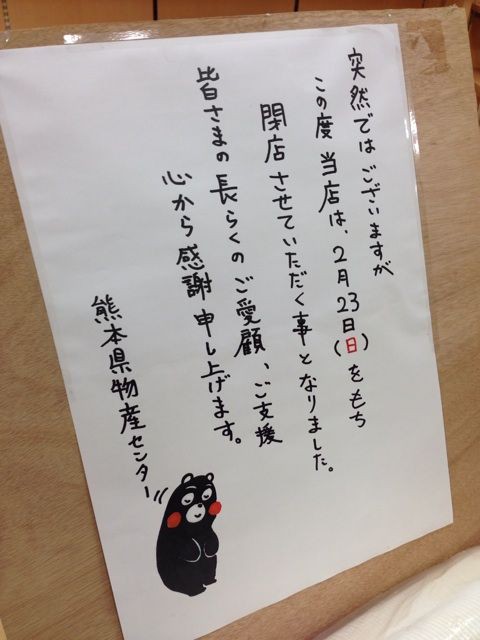 突然ではございますが
この度当店は、2月23日(日)をもち
閉店させていただく事となりました。
皆さまの長らくのご愛顧、ご支援
心から感謝申し上げます。
熊本県物産センター